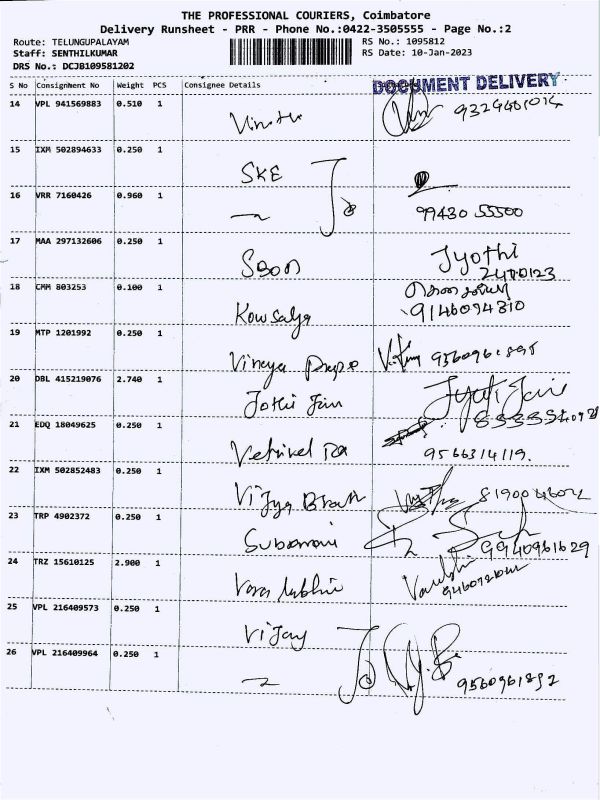 THE PROFESSIONAL COURIERS, Coimbatore
Delivery Runsheet - PRR - Phone No.:0422-3505555 - Page No.:2
Route: TELUNGUPALAYAM RS No.: 1095812
Staff: SENTHILKUMAR RS Date: 10-Jan-2023
DRS No.: DCJB109581202
S No Consignment No Weight PCS Consignee Details DOCUMENT DELIVERY
14 VPL 941569883 0.510 1
15 IXM 502894633 0.250 1
SKE
16 VRR 7160426 0.960 1
99430 55500
17 MAA 297132606 0.250 1
Jyothi
18 CMM 803253 0.100 1
Kowsalya 9146094310
19 MTP 1201992 0.250 1
20 DBL 415219076 2.740 1
Jothi Jain Jyoti Jain
21 EDQ 18049625 0.250 1
Vetrivel 9566314119.
22 IXM 502852483 0.250 1
23 TRP 4902372 0.250 1
9940961629
24 TRZ 15610125 2.900 1
25 VPL 216409573 0.250 1
Vijay
26 VPL 216409964 0.250 1
9560961892